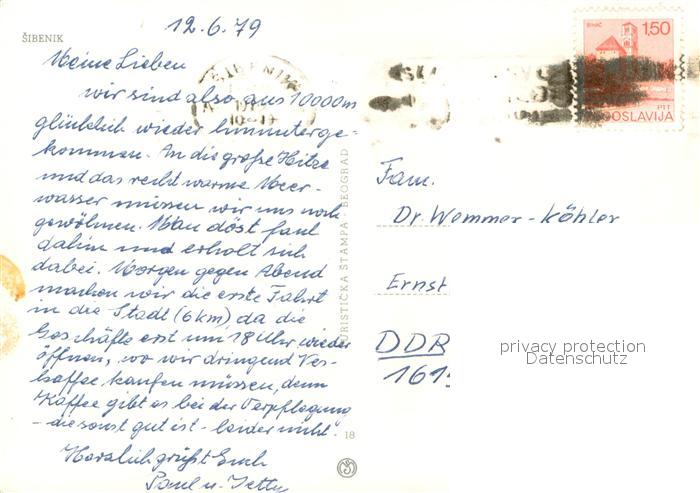 12.6.79
ŠIBENIK
Meine Lieben
wir sind also aus 10000m
glücklich wieder hinunterge-
kommen. An die große Hitze
und das recht warme Meer-
wasser müssen wir uns noch
gewöhnen. Man döst faul
dahin und erholt sich
dabei. Morgen gegen Abend
machen wir die erste Fahrt
in die Stadt (6km) da die
Geschäfte erst um 18 Uhr wieder
öffnen, wo wir dringend Nes-
kaffee kaufen müssen, denn
Kaffee gibt es bei der Verpflegung
- die sonst gut ist - leider nicht.
Herzlich grüßt Euch
Paul u.
TURISTIČKA ŠTAMPA - BEOGRAD
18
BIHAĆ
1,50
PTT
JUGOSLAVIJA
Fam.
Dr. Wemmer-Köhler
Ernst
DDR
161
privacy protection
Datenschutz